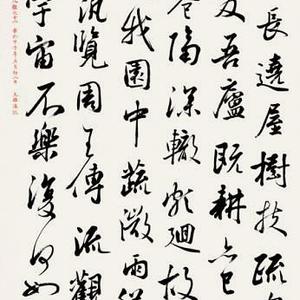 長遶屋樹扶疏
愛吾廬既耕亦已
巷隔深轍頗迴故
我園中蔬微雨從
汎覽周王傳流觀
宇宙不樂復何如